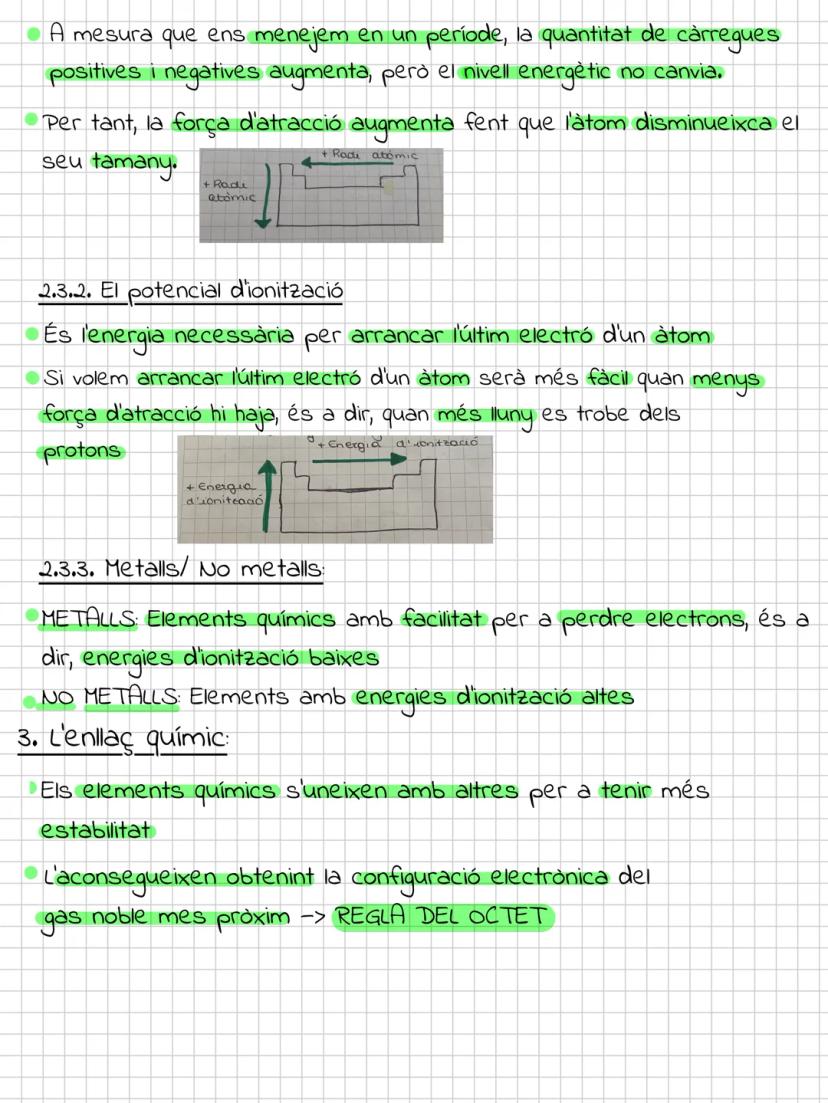 A mesura que ens menejem en un període, la quantitat de càrregues
positives i negatives augmenta, però el nivell energètic no canvia.
Per tant, la força d'atracció augmenta fent que l'àtom disminueixca el
seu tamany.
+ Radi atòmic
+ Radi
atòmic
2.3.2. El potencial d'ionització
És l'energia necessària per arrancar l'últim electró d'un àtom
Si volem arrancar l'últim electró d'un àtom serà més fàcil quan menys
força d'atracció hi haja, és a dir, quan més lluny es trobe dels
protons
+ Energia d'ionització
+ Energia
d'ionització
2.3.3. Metalls/ No metalls:
METALLS: Elements químics amb facilitat per a perdre electrons, és a
dir, energies d'ionització baixes
NO METALLS: Elements amb energies d'ionització altes
3. L'enllaç químic:
Els elements químics s'uneixen amb altres per a tenir més
estabilitat
L'aconsegueixen obtenint la configuració electrònica del
gas noble mes pròxim -> REGLA DEL OCTET